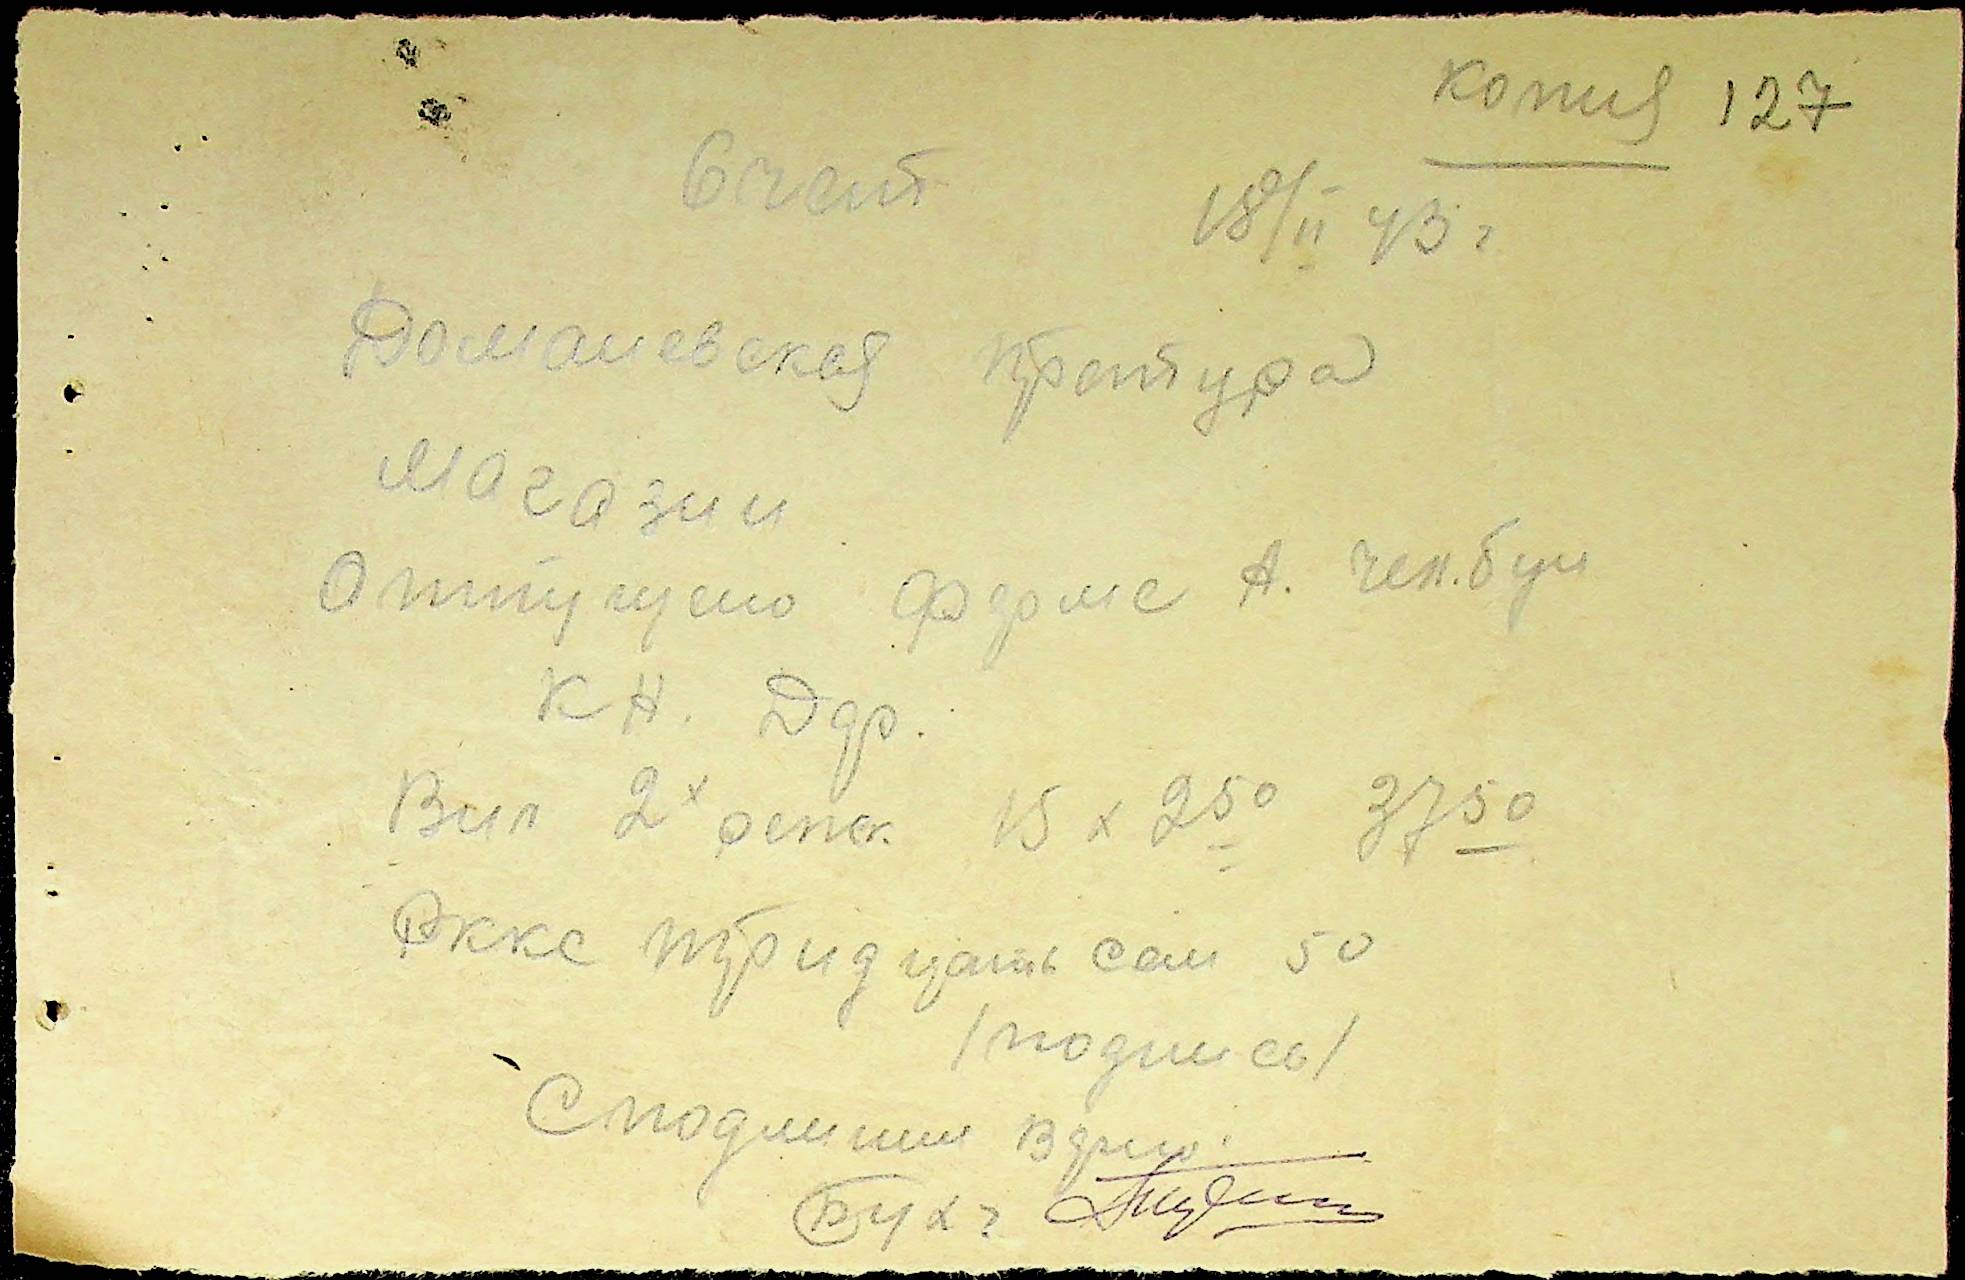 Копия 127
Счет 18/II 43 г
Доманевская претура
Магазин
Отпущено ферме А.
К Н. Дер.
Вил 2х 15 х 2 50 37 50
Ркке тридцать сем 50
/подпись/
С подлиним верно.
Бух.